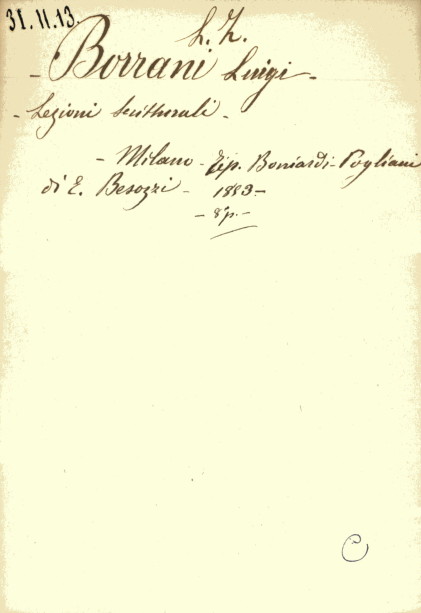 31.11.13.
L. Z.
- Borrani Luigi -
- Lezioni scritturali -
- Milano - Tip. Boniardi - Pogliani
di E. Besozzi - 1883 -
- 8°p. -
C